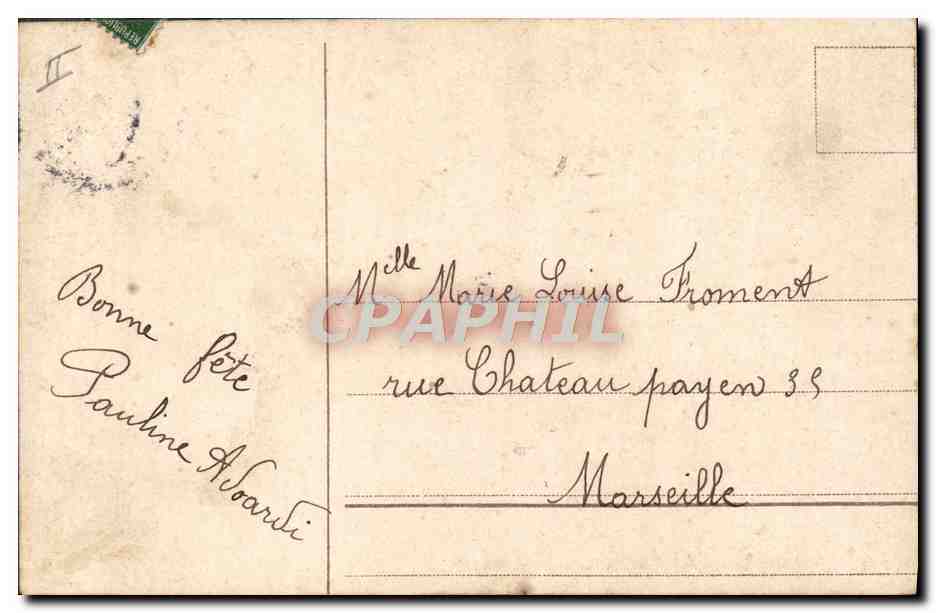 II
Bonne fête
Pauline Adoardi
Mlle Marie Louise Froment
rue Chateau payen 35
Marseille
CPAPHIL